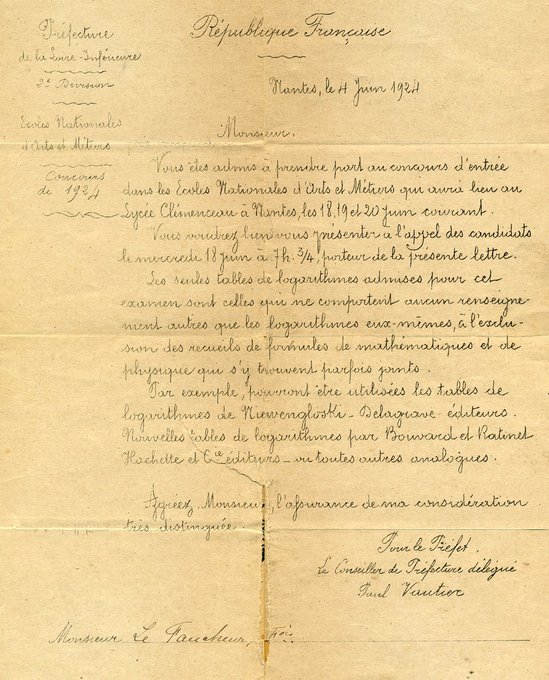 Préfecture
de la Loire-Inférieure
2e Division
Ecoles Nationales
d'Arts et Métiers
Concours
de 1924
République Française
Nantes, le 4 Juin 1924
Monsieur.
Vous êtes admis à prendre part au concours d'entrée
dans les Ecoles Nationales d'Arts et Métiers qui aura lieu au
Lycée Clémenceau à Nantes, les 18, 19 et 20 Juin courant.
Vous voudrez bien vous présenter à l'appel des candidats
le mercredi 18 juin à 7h. 3/4, porteur de la présente lettre.
Les seules tables de logarithmes admises pour cet
examen sont celles qui ne comportent aucun renseigne-
ment autres que les logarithmes eux-mêmes, à l'exclu-
sion des recueils de formules de mathématiques et de
physique qui s'y trouvent parfois joints.
Par exemple, pourront être utilisées les tables de
logarithmes de Niewengloski-Delagrave éditeurs.
Nouvelles tables de logarithmes par Bouvard et Ratinet
Hachette et Cie éditeurs - ou toutes autres analogues.
Agréez, Monsieur, l'assurance de ma considération
très distinguée.
Pour le Préfet.
Le Conseiller de Préfecture délégué
Paul Vautier
Monsieur Le Faucheur,